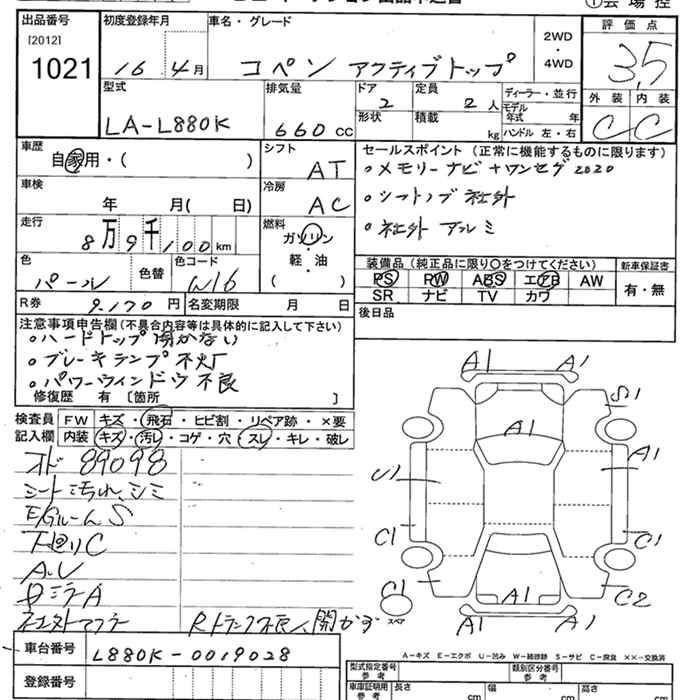 ① 会場控
出品番号 初度登録年月 車名・グレード 評価点
[2012]
1021
16年 4月 コペン アクティブトップ 2WD・4WD 3.5
外装 内装
C C
型式 排気量 ドア 2 定員 2人 ディーラー・並行
LA-L880K 660cc 形状 積載 kg モデル年式 年
ハンドル 左・右
車歴 自家用・( ) シフト AT
セールスポイント (正常に機能するものに限ります)
・メモリーナビ+ワンセグ2020
・シフトノブ社外
・社外アルミ
車検 年 月( 日) 冷房 AC
走行 8万9千100km 燃料 ガソリン・軽油・( )
色 パール 色替 色コード W16
装備品 (純正品に限り○をつけてください) 新車保証書
PS RW ABS エアB AW 有・無
SR ナビ TV カワ
R券 9.170円 名変期限 月 日
後日品
注意事項申告欄 (不具合内容等は具体的に記入して下さい)
・ハードトップ開かない
・ブレーキランプ不灯
・パワーウィンドウ不良
修復歴 有 [箇所 ]
検査員記入欄 FW キズ・飛石・ヒビ割・リペア跡・×要
内装 キズ・汚レ・コゲ・穴・スレ・キレ・破レ
オド 89098
シート汚れ、シミ
E/GルームS
下回りC
A.U
ミラーA
社外マフラー Rトランク不良、開かず
A1 A1
S1
A1
A1
U1
C1 C1
C1 A1 C2
スペア
A1 A1
A-キズ E-エクボ U-凹み W-補修跡 S-サビ C-腐食 ××-交換済
車台番号 L880K-0019028
登録番号
型式指定番号 参考 類別区分番号 参考
車庫証明用 参考 長さ cm 幅 cm 高さ cm